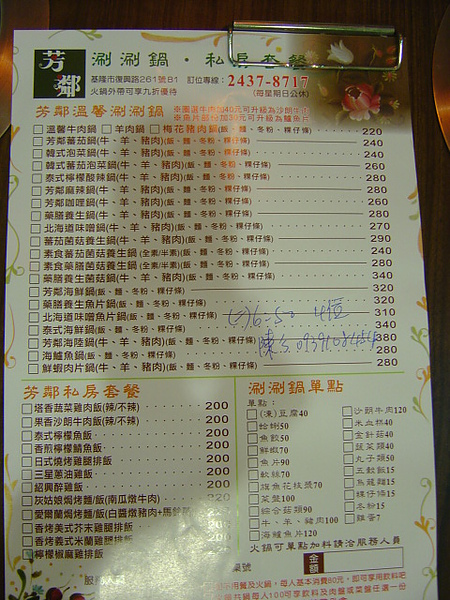 芳鄰
涮涮鍋・私房套餐
基隆市復興路261號B1 訂位專線：2437-8717
火鍋外帶可享九折優待 (每星期日公休)
芳鄰溫馨涮涮鍋
溫馨牛肉鍋 羊肉鍋 梅花豬肉鍋(飯、麵、冬粉、粿仔條) 220
芳鄰蕃茄鍋(牛、羊、豬肉)(飯、麵、冬粉、粿仔條) 240
韓式泡菜鍋(牛、羊、豬肉)(飯、麵、冬粉、粿仔條) 240
韓式蕃茄泡菜鍋(牛、羊、豬肉)(飯、麵、冬粉、粿仔條) 260
泰式檸檬酸辣鍋(牛、羊、豬肉)(飯、麵、冬粉、粿仔條) 260
芳鄰麻辣鍋(牛、羊、豬肉)(飯、麵、冬粉、粿仔條) 280
芳鄰咖哩鍋(牛、羊、豬肉)(飯、麵、冬粉、粿仔條) 260
藥膳養生鍋(牛、羊、豬肉)(飯、麵、冬粉、粿仔條) 280
北海道味噌鍋(牛、羊、豬肉)(飯、麵、冬粉、粿仔條) 270
蕃茄菌菇養生鍋(牛、羊、豬肉)(飯、麵、冬粉、粿仔條) 290
素食蕃茄菌菇養生鍋(全素/半素)(飯、麵、冬粉、粿仔條) 240
素食藥膳菌菇養生鍋(全素/半素)(飯、麵、冬粉、粿仔條) 280
藥膳菌菇養生鍋(牛、羊、豬肉)(飯、麵、冬粉、粿仔條) 340
芳鄰海鮮鍋(飯、麵、冬粉、粿仔條) 320
藥膳養生魚片鍋(飯、麵、冬粉、粿仔條) 320
北海道味噌魚片鍋(飯、麵、冬粉、粿仔條) 310
泰式海鮮鍋(飯、麵、冬粉、粿仔條) 340
芳鄰海陸鍋(牛、羊、豬肉)(飯、麵、冬粉、粿仔條) 380
海鱸魚鍋(飯、麵、冬粉、粿仔條) 280
鮮蝦肉片鍋(牛、羊、豬肉)(飯、麵、冬粉、粿仔條) 280
6:50 4位
芳鄰私房套餐
塔香菇菜雞肉飯(辣/不辣) 200
果香沙朗牛肉飯(辣/不辣) 200
泰式檸檬魚飯 200
香煎檸檬鯖魚飯 200
日式燒烤雞腿排飯 200
三星蔥油雞飯 200
紹興醉雞飯 200
灰姑娘焗烤麵/飯(南瓜燉牛肉) 220
愛爾蘭焗烤麵/飯(白醬燉豬肉+馬鈴薯)
香烤義式芥末雞腿排飯
香烤義式米蘭雞腿排飯
檸檬椒麻雞腿排飯
涮涮鍋單點
單點：
(凍)豆腐40
蛤蜊50
魚餃50
鮮蝦70
魚片90
軟絲70
燻魚花枝漿70
菜盤100
綜合菇類90
牛、羊、豬肉100
海鱸魚片120
沙朗牛肉120
米血糕40
金針菇40
蔬菜類40
丸子類50
五穀飯15
烏龍麵15
粿仔條15
冬粉15
雞蛋7
火鍋可單點加料請洽服務人員
桌號
金額